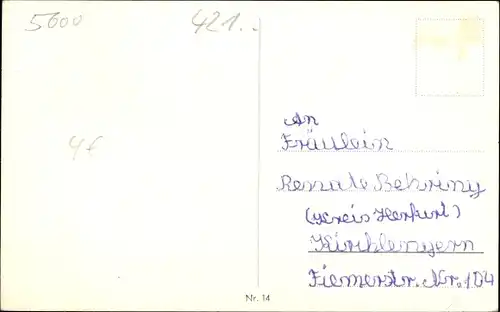 5600
421..
4€
An
Fräulein
Renate Behring
(Kreis Herford)
Kirchlengern
Fiemerstr. Nr. 104
Nr. 14